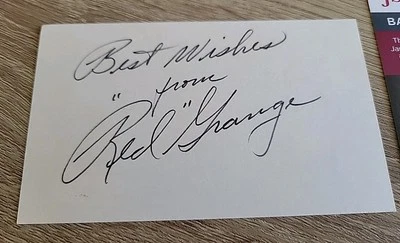 Best Wishes
" from
Red" Grange
JS
BA
Th
Ja